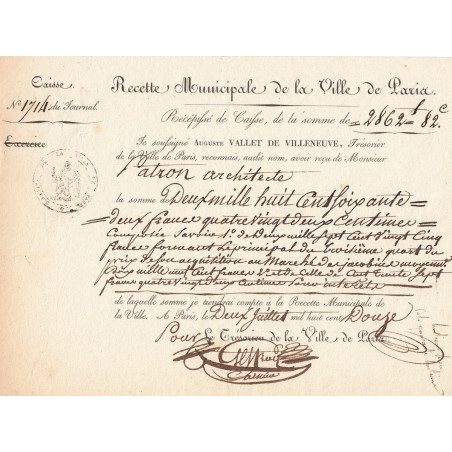 Caisse.
N.° 1714 du Journal.
Exercice
Recette Municipale de la Ville de Paris.
Récépissé de Caisse, de la somme de = 2862 f 82 c
Je soussigné AUGUSTE VALLET DE VILLENEUVE, Trésorier
de la Ville de Paris, reconnais, audit nom, avoir reçu de Monsieur
Patron architecte
la somme de Deux mille huit Cent soixante
= deux francs quatre vingt deux Centimes =
Composée Savoir 1.° de Deux mille Sept Cent Vingt Cinq
francs formant le principal du troisième quart du
prix de son acquisition au Marché des jacobins moyennant
Dix mille neuf Cent francs Et de Celle de Cent Trente Sept
francs quatre vingt deux Centimes pour intérêts
de laquelle somme je tiendrai compte à la Recette Municipale de
la Ville. A Paris, le Deux Juillet mil huit cent Douze
Pour Le Trésorier de la Ville de Paris.